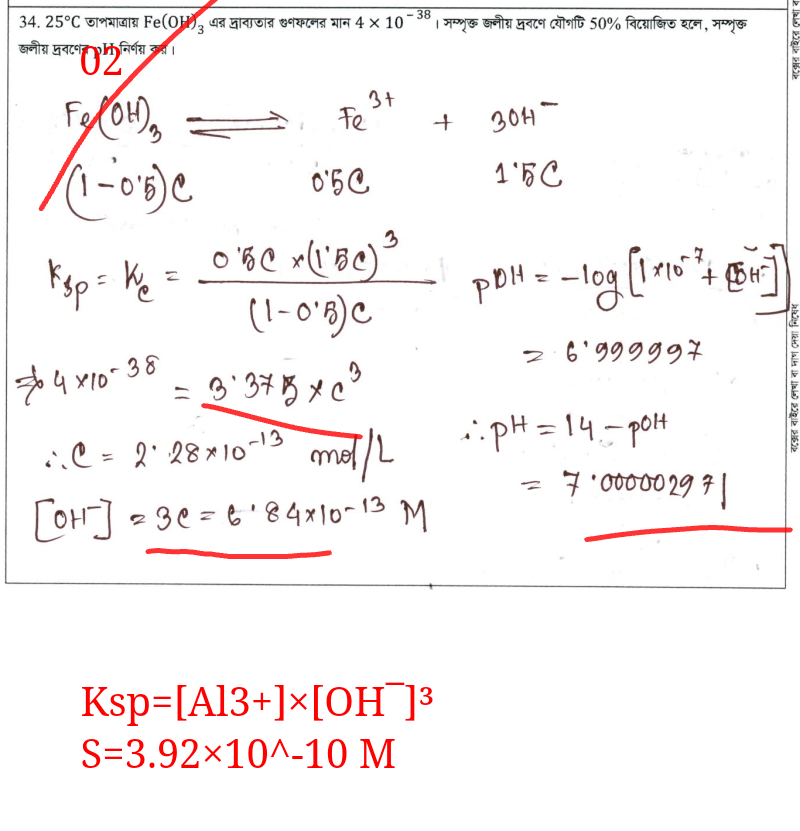 34. 25°C তাপমাত্রায় Fe(OH)₃ এর দ্রাব্যতার গুণফলের মান 4 × 10⁻³⁸। সম্পৃক্ত জলীয় দ্রবণে যৌগটি 50% বিয়োজিত হলে, সম্পৃক্ত
জলীয় দ্রবণের pH নির্ণয় কর।
02
Fe(OH)₃ ⇌ Fe³⁺ + 3OH⁻
(1-0.5)C 0.5C 1.5C
Ksp = Kc = 0.5C × (1.5C)³ / (1-0.5)C
⇒ 4×10⁻³⁸ = 3.375 × C³
∴ C = 2.28×10⁻¹³ mol/L
[OH⁻] = 3C = 6.84×10⁻¹³ M
pOH = -log[1×10⁻⁷ + [OH⁻]]
= 6.999997
∴ pH = 14 - pOH
= 7.000002971
বক্সের বাইরে লেখা বা দাগ দেয়া নিষেধ
Ksp=[Al3+]×[OH¯]³
S=3.92×10^-10 M